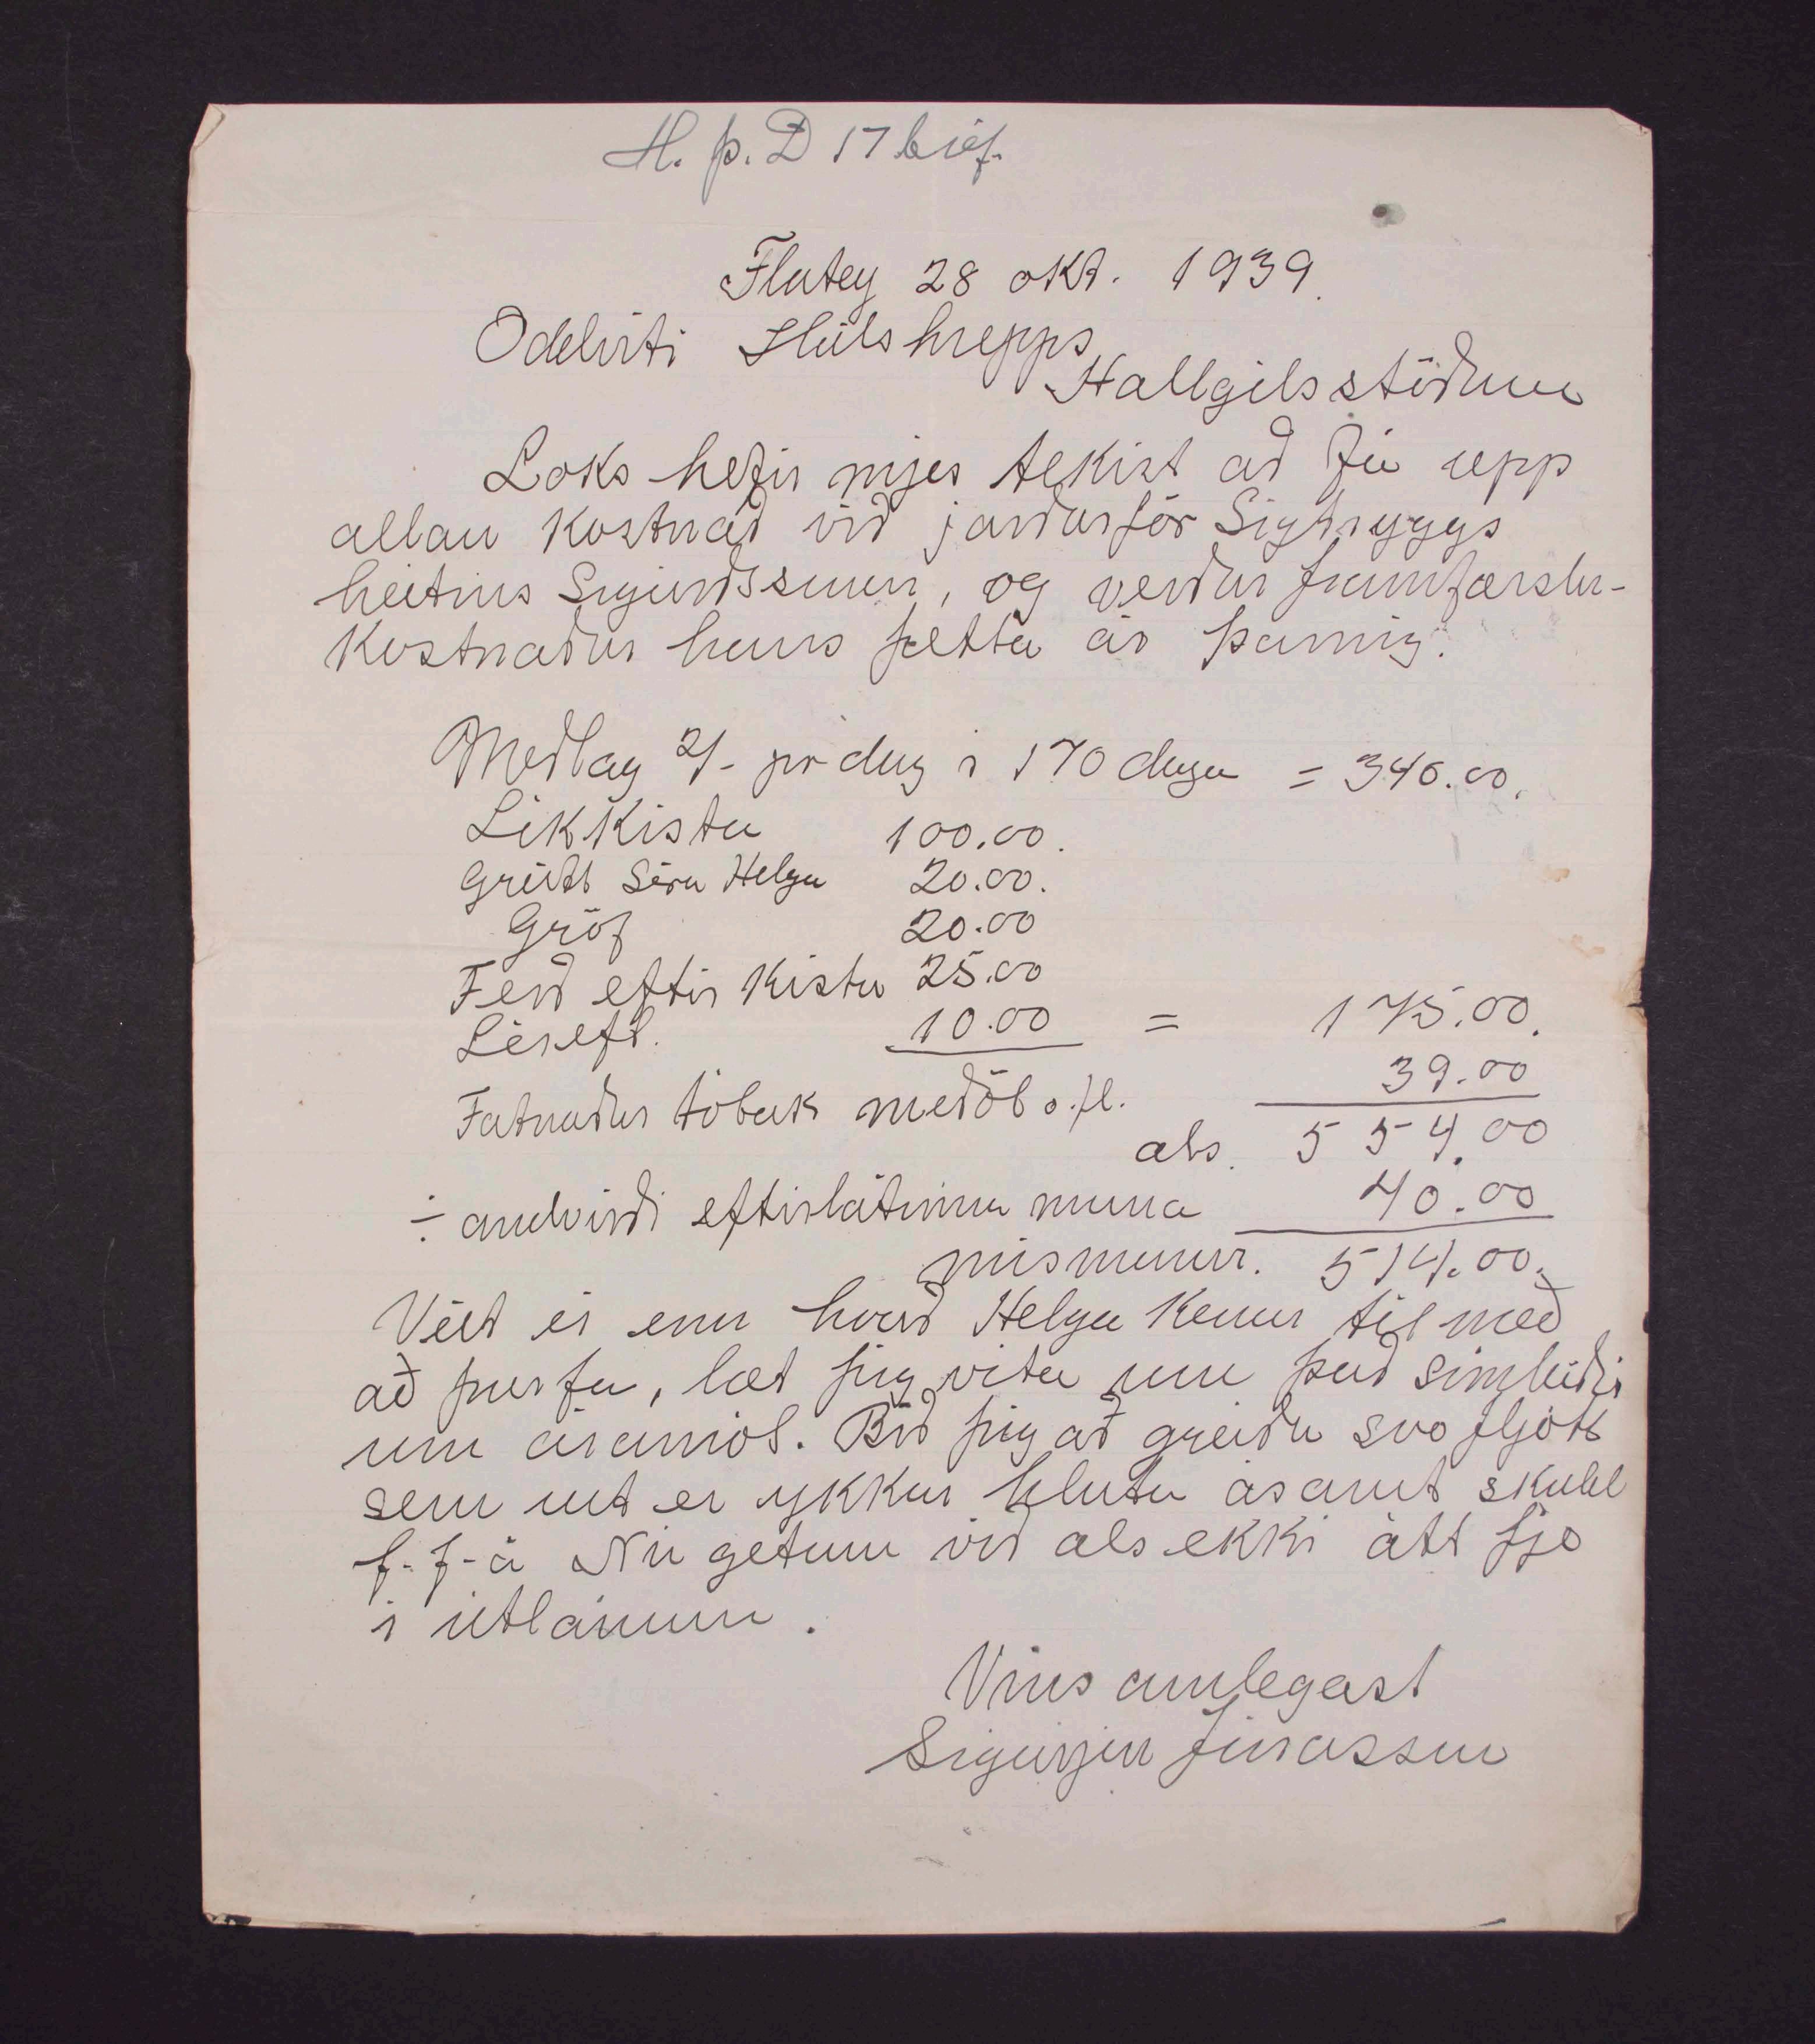 H. þ. D 17 bréf.
Flatey 28 okt. 1939.
Oddviti Hálshrepps
Hallgilsstöðum
Loks hefir mjer tekist að fá upp
allan kostnað við jarðarför Sigtryggs
heitins Sigurðssonar, og verður framfærslu-
kostnaður hans þetta ár þannig:
Meðlag 2/- pr dag í 170 daga = 340.00.
Líkkista 100.00.
Greitt Séra Helga 20.00.
Gröf 20.00
Ferð eftir kistu 25.00
Léreft. 10.00 = 175.00.
Fatnaður tóbak meðöl o.fl. 39.00
als. 554.00
÷ andvirði eftirlátinna muna 40.00
mismunur. 514.00.
Veit ei enn hvað Helga kemur til með
að þurfa, læt þig vita um það
um áramót. Bið þig að greiða svo fljótt
sem unt er ykkar hluta ásamt skuld
f. f-á Nú getum við als ekki átt fje
í útlánum.
Vinsamlegast
Sigurjón Jónasson